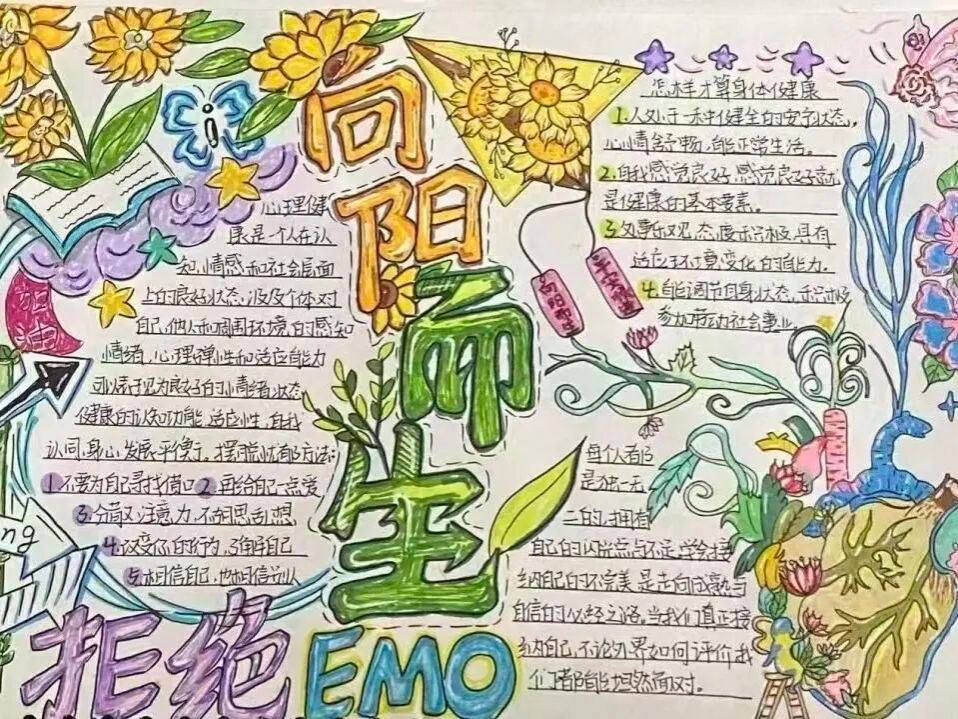 向阳而生
加油
心理健
康是一个人在认
知,情感和社会层面
上的良好状态,涉及个体对
自己,他人和周围环境的感知
情绪,心理弹性和适应能力
可以表现为良好的情绪状态
健康的认知功能,适应性,自我
认同,身心发展平衡了。摆脱忧郁方法:
1.不要为自己寻找借口 2.再给自己一点爱
3.分散注意力,不胡思乱想
4.改变你的行为,了解自己
5.相信自己,也相信别人
拒绝EMO
怎样才算身体健康
1.人处于一种健全的安宁状态,
心情舒畅,能正常生活。
2.自我感觉良好,感觉良好就
是健康的基本要素。
3.处事乐观,态度积极,具有
适应环境变化的能力。
4.自能调节自身状态,积极
参加劳动社会事业。
向阳而生
每个人都
是独一无
二的,拥有
自己的闪光点与不足,学会接
纳自己的不完美,是走向成熟与
自信的必经之路。当我们真正接
纳自己,不论外界如何评价,我
们都能坦然面对。